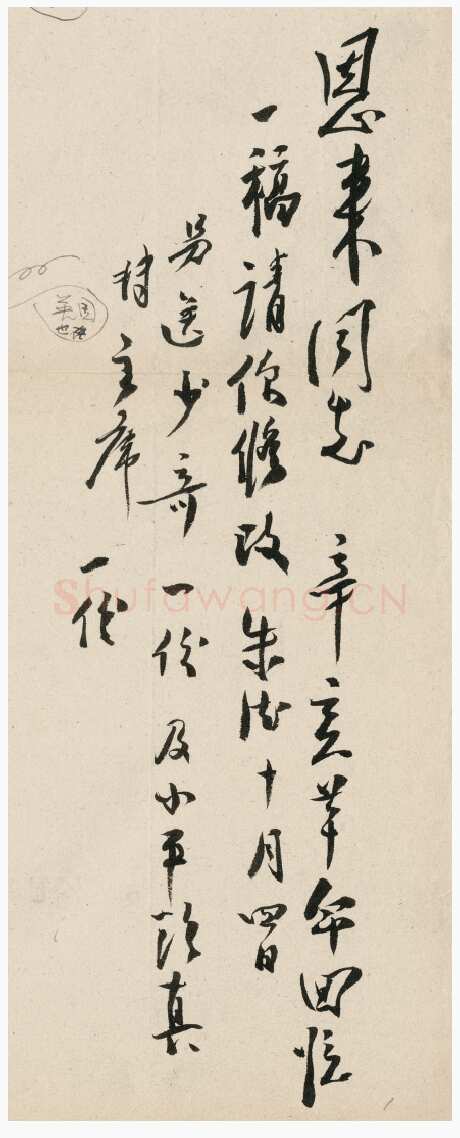 恩来同志 辛亥革命回憶
一稿請你修改 朱德十月四日
另送少奇一份及小平彭真
主席一份
Shufawang.CN